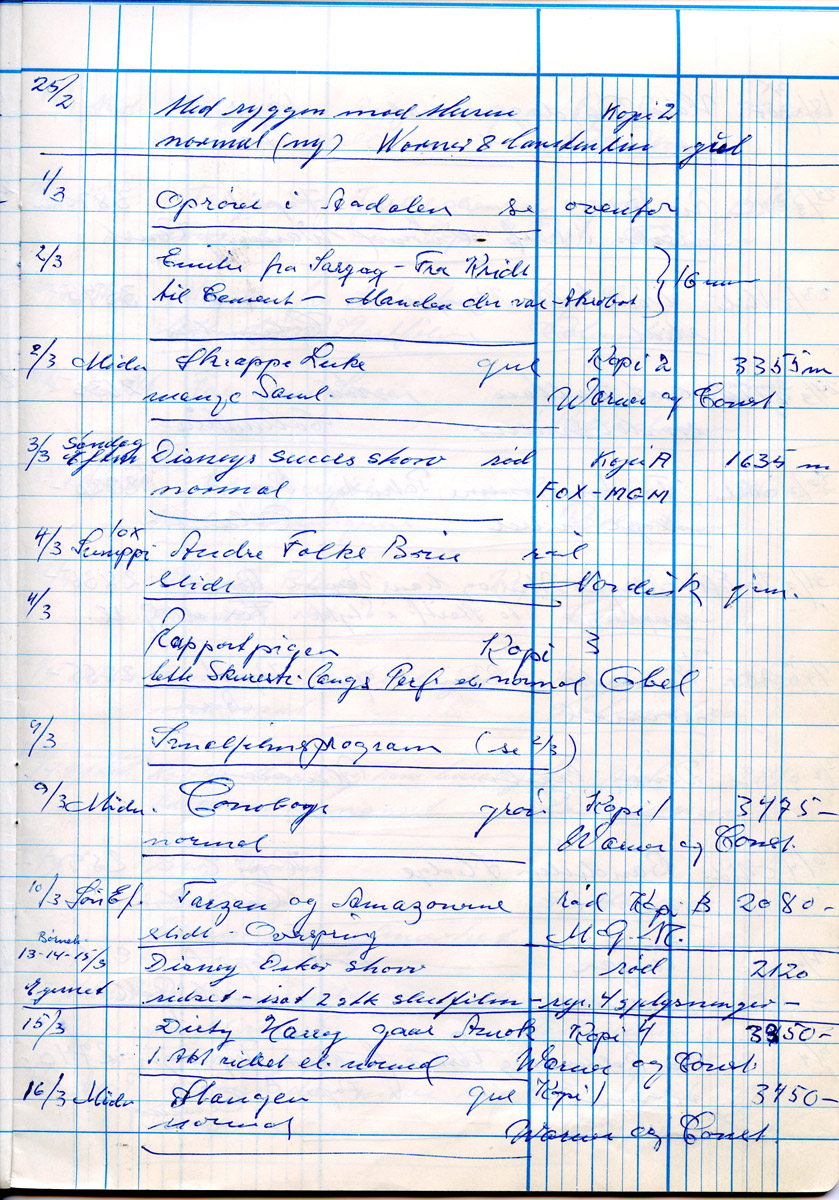 25/2
Med ryggen mod muren Kopi 2
normal (ny) Warner & Constantin gul
1/3 Oprøret i Aadalen se ovenfor
2/3 Emilie fra Sarqaq - Fra Kridt
til Cement - Manden der var Akrobat } 16 mm
2/3 Midn Skrappe Luke gul Kopi 2 3355 m
mange Saml. Warner og Const.
3/3 Søndag Eftm Disneys succes show rød Kopi A 1635 m
normal FOX-MGM
4/3 Sumppi Andre Folks Børn
slidt Nordisk
4/3
Rapportpigen Kopi 3
lette Skurestr. langs Perf. el. normal Obel
9/3 Smalfilmsprogram (se 2/3)
9/3 Midn. grøn Kopi 1 3475-
normal Warner og Const.
10/3 Søn Ef. Tarzan og Amazonerne rød Kopi B 2080-
slidt - Overspring M.G.M.
Børneh.
13-14-15/3 Disney Oskar show rød 2120
Egernet ridset - isat 2 stk slutfilm - rep. 4 splejsninger -
15/3 Dirty Harry gaar Amok Kopi 4 3350-
1. Akt ridset el. normal Warner og Const.
16/3 Midn Slangen gul Kopi 1 3450-
normal Warner og Const.